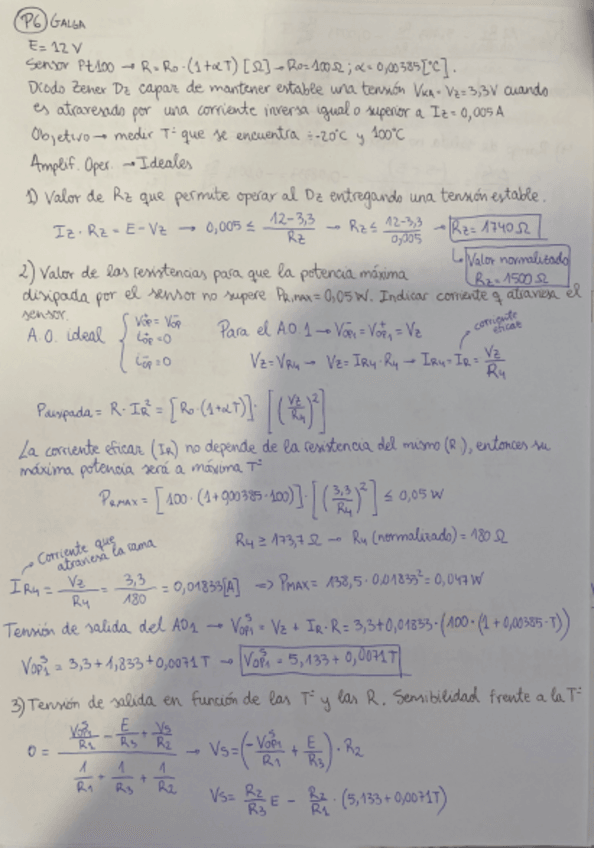 P6 GALGA
E = 12 V
Sensor Pt100 → R = R₀·(1+αT) [Ω] → R₀ = 100Ω ; α = 0,00385[°C].
Diodo Zener Dz capaz de mantener estable una tensión VKA = Vz = 3,3V cuando
es atravesado por una corriente inversa igual o superior a Iz = 0,005 A
Objetivo → medir Tª que se encuentra ÷ -20°C y 100°C
Amplif. Oper. → Ideales
1) Valor de Rz que permite operar al Dz entregando una tensión estable.
Iz · Rz = E - Vz → 0,005 ≤ (12-3,3)/Rz → Rz ≤ (12-3,3)/0,005 → Rz = 1740Ω
↳ Valor normalizado
Rz = 1500Ω
2) Valor de las resistencias para que la potencia máxima
disipada por el sensor no supere PR,max = 0,05 W. Indicar corriente q atraviesa el
sensor.
A.O. ideal { Vop⁺ = Vop⁻
iop⁺ = 0
iop⁻ = 0
Para el AO.1 → Vop₁⁻ = Vop₁⁺ = Vz
corriente eficaz
Vz = VR4 → Vz = IR4 · R4 → IR4 = IR = Vz/R4
Pdisipada = R · IR² = [R₀·(1+αT)] · [(Vz/R4)²]
La corriente eficaz (IR) no depende de la resistencia del mismo (R), entonces su
máxima potencia será a máxima Tª
PRMAX = [100·(1+0,00385·100)] · [(3,3/R4)²] ≤ 0,05 W
R4 ≥ 173,7 Ω → R4 (normalizado) = 180 Ω
Corriente que
atraviesa la rama
IR4 = Vz/R4 = 3,3/180 = 0,01833[A] => PMAX = 138,5 · 0,01833² = 0,047W
Tensión de salida del AO1 → Vop₁ˢ = Vz + IR·R = 3,3+0,01833·(100·(1+0,00385·T))
Vop₁ˢ = 3,3+1,833+0,0071T → Vop₁ˢ = 5,133 + 0,0071T
3) Tensión de salida en función de las Tª y las R. Sensibilidad frente a la Tª
0 = (Vop₁ˢ/R1 - E/R3 + Vs/R2)/(1/R1 + 1/R3 + 1/R2) → Vs = (-Vop₁ˢ/R1 + E/R3) · R2
Vs = R2/R3 E - R2/R1 · (5,133+0,0071T)